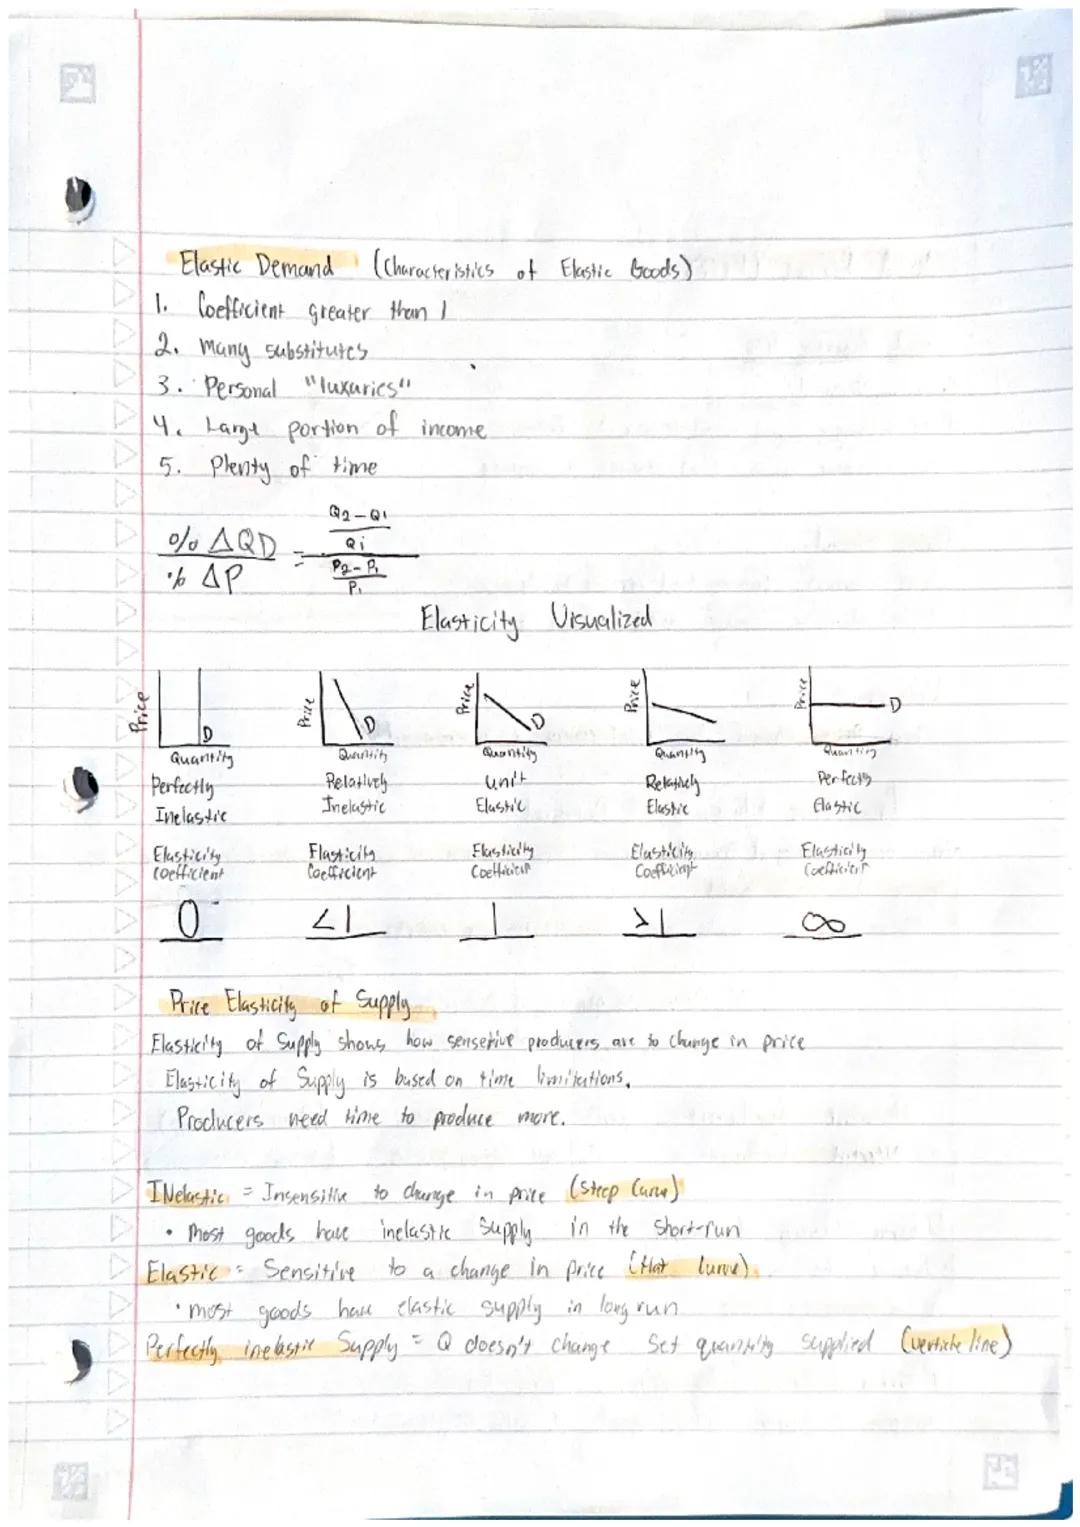 Elastic Demand (Characteristics of Elastic Goods)
1. Coefficient greater than 1
2. Many substitutes
3. Personal "luxuries"
4. Large portion of income
5. Plenty of time
% ΔQD / % ΔP = (Q2-Q1 / Qi) / (P2-P1 / P1)
Elasticity Visualized
Price Price Price Price Price
D D D D
Quantity Quantity Quantity Quantity Quantity
Perfectly Relatively Unit Relatively Perfectly
Inelastic Inelastic Elastic Elastic Elastic
Elasticity Elasticity Elasticity Elasticity Elasticity
Coefficient Coefficient Coefficient Coefficient Coefficient
0 <1 1 >1 ∞
Price Elasticity of Supply
Elasticity of Supply shows how sensetive producers are to change in price
Elasticity of Supply is based on time limitations.
Producers need time to produce more.
INelastic = Insensitive to change in price (Steep Curve)
• Most goods have inelastic Supply in the short-run
Elastic = Sensitive to a change in price (flat curve).
• most goods have elastic supply in long run
Perfectly inelastic Supply = Q doesn't change Set quantity supplied (verticle line)